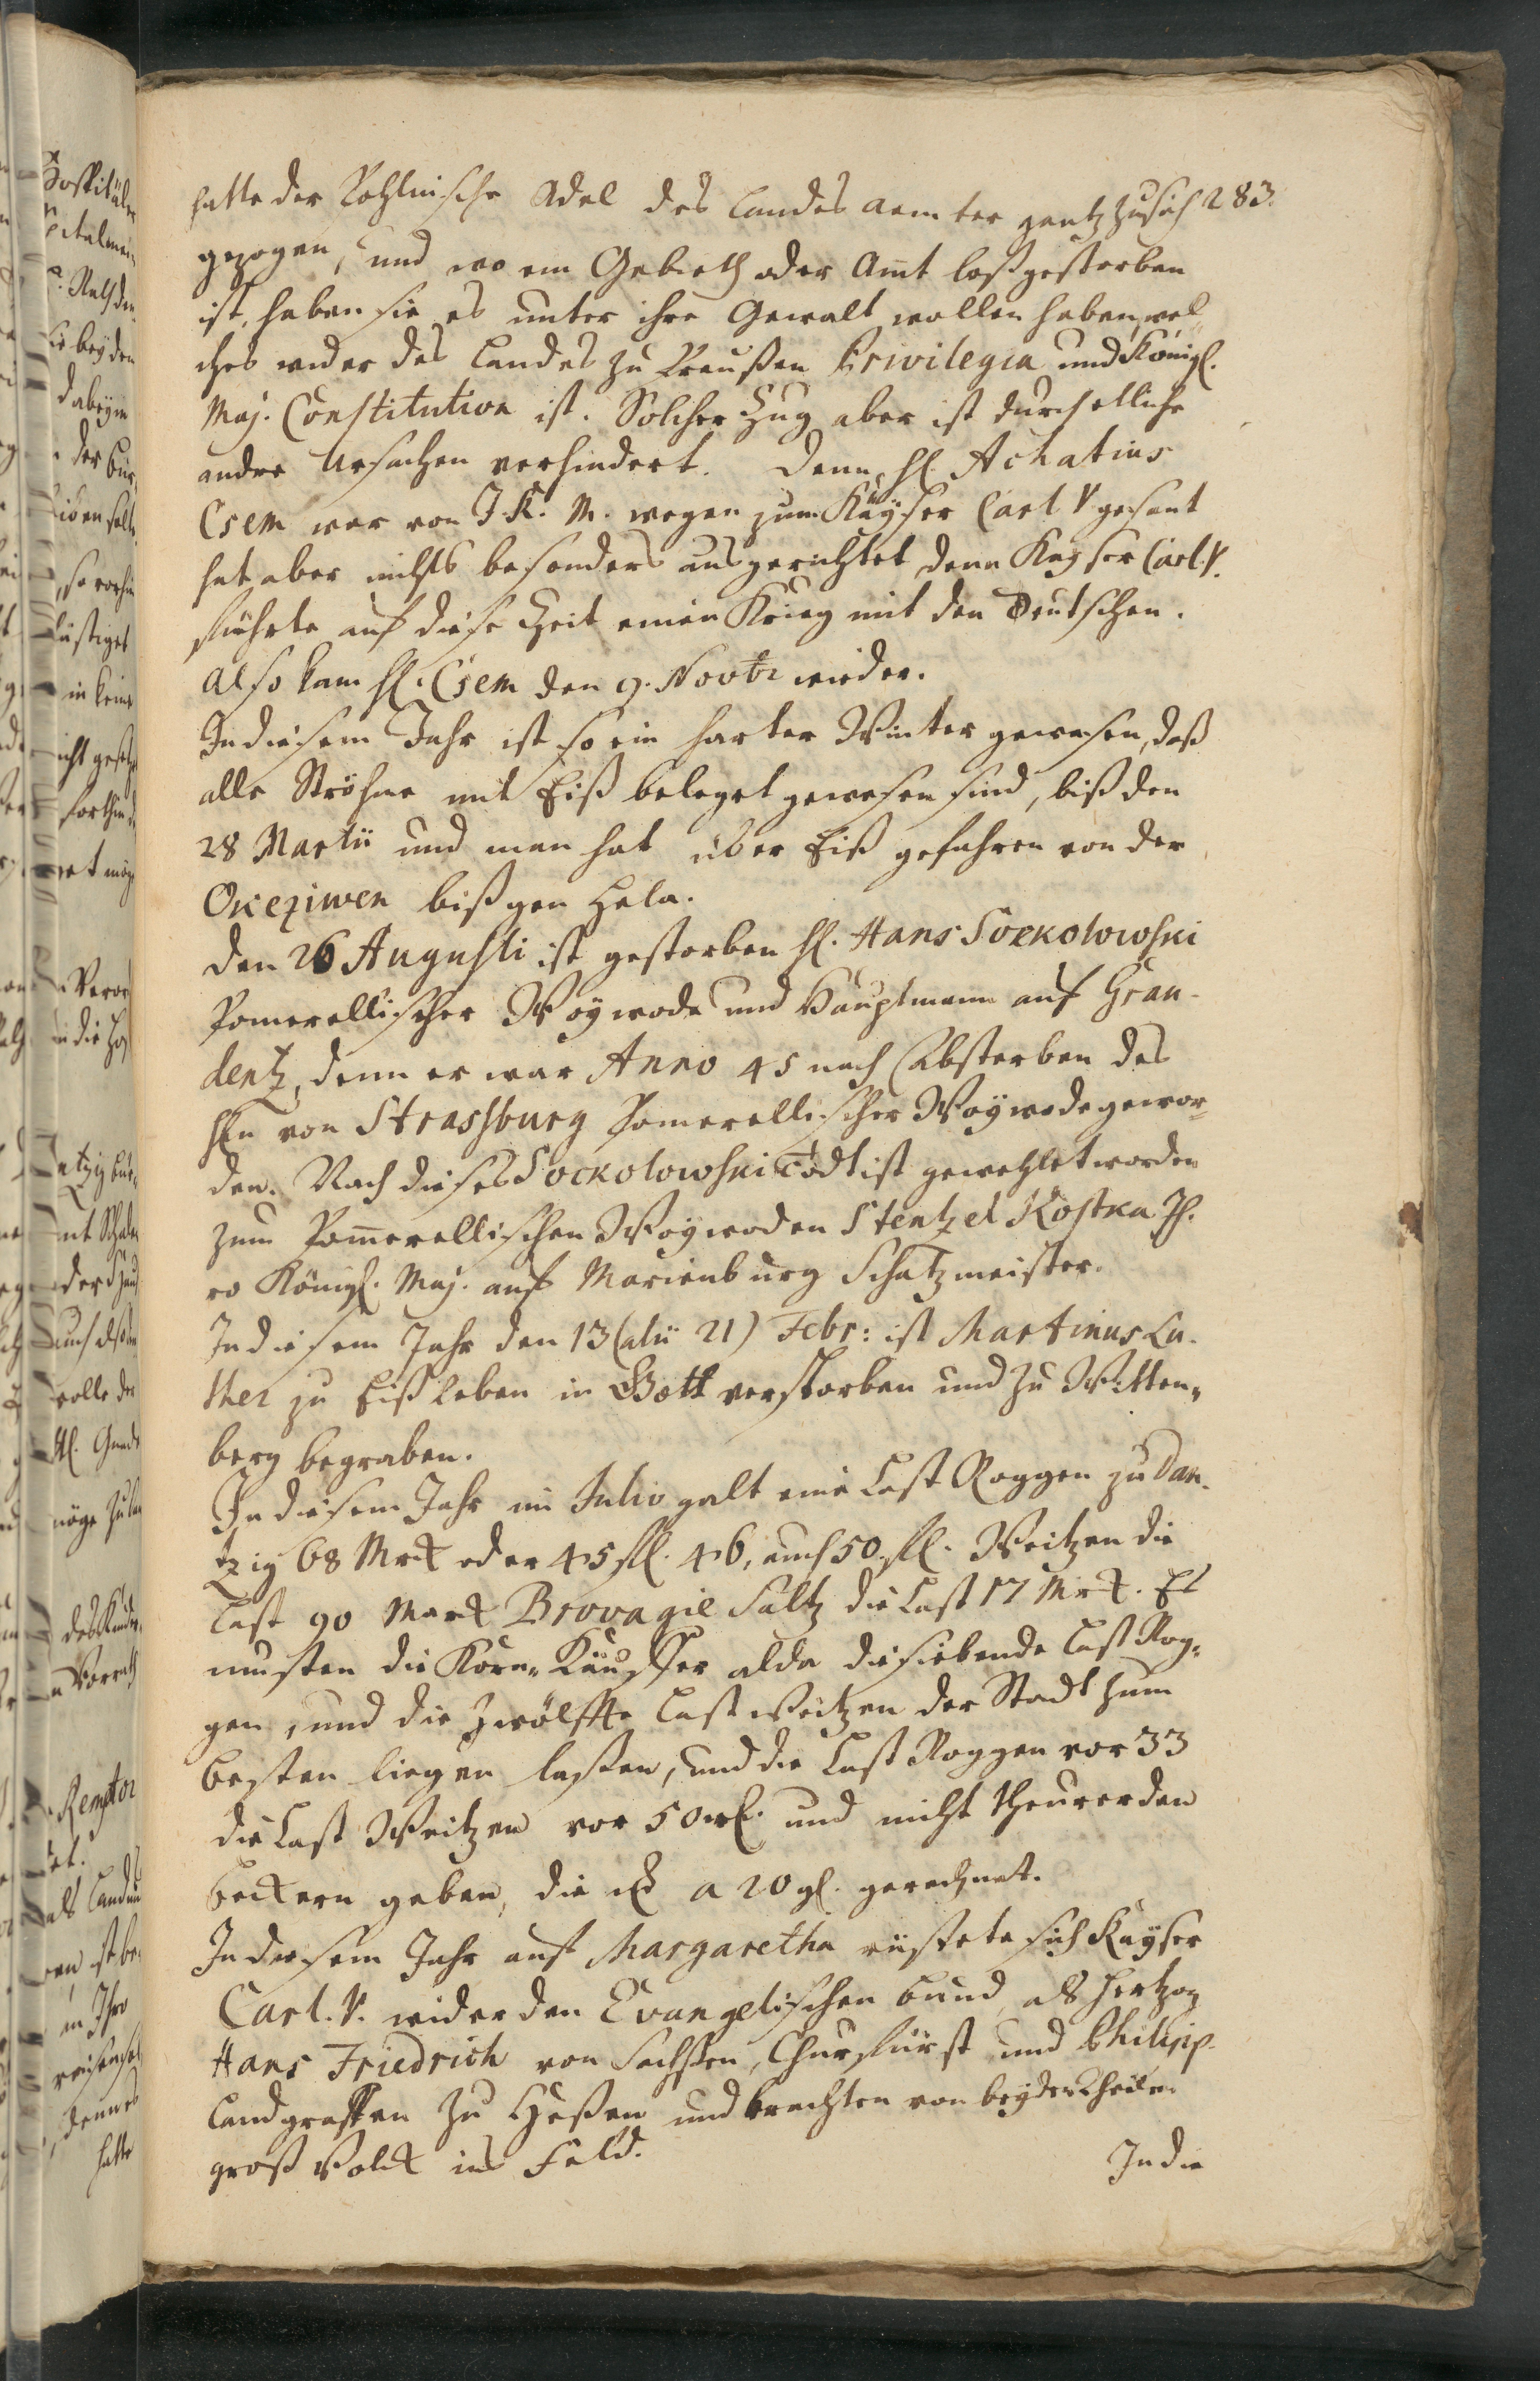 283.
hatte der Pohlnische Adel des Landes aemter gantz zu sich
gezogen, und wo ein Gebieth oder Amt loßgestorben
ist, haben sie es unter ihre Gewalt wollen haben, wel-
ches wider des Landes zu Preußen Privilegia und Königl.
Maj. Constitution ist. Solcher Zug aber ist durch etliche
andre Ursachen verhindert. Denn, H. Achatius
Csem war von J. K. M. wegen zum Käyser Carl V gesant
hat aber nichts besonders ausgerichtet denn Kayser Carl. V.
führte auf diese Zeit einen Krieg mit den Deutschen.
Also kam H. Csem den 9. Novbr wieder.
In diesem Jahr ist so ein harter Winter gewesen, daß
alle Ströhme mit Eiß beleget gewesen sind, biß den
28 Martii und man hat über Eiß gefahren von der
Oxeziwen biß gen Hela.
Den 26 Augusti ist gestorben H. Hans Sockolowski
Pomerellischer Woywode und Hauptmann auf Grau-
dentz, denn er war Anno 45 nach Absterben des
HEn von Strassburg Pomerellischer Woywode gewor-
den. Nach dieses Sockolowski Tod ist gewehlet worden
zum Pom̄erellischen Woywoden Stentzel Kostka Ih-
ro Königl. Maj. auf Marienburg Schatzmeister.
In diesem Jahr den 13 (alii 21) Febr: ist Martinus Lu-
ther zu Eißleben in Gott verstorben und zu Witten-
berg begraben.
In diesem Jahr im Julio galt eine Last Roggen zu Dan-
tzig 68 Mrck oder 45 fl. 46, auch 50. fl. Weitzen die
Last 90 Marck Brovagie Saltz die Last 17 Mrck. Es
musten die Korn-Käuffer alda die siebende Last Rog-
gen, und die Zwölffte Last Weitzen der Stadt zum
besten liegen laßen, und die Last Roggen vor 33
die Last Weitzen vor 50 und nicht theurer den
Beckern geben, die a 20 gl. gerechnet.
In diesem Jahr auf Margaretha rüstete sich Kayser
Carl. V. wider den Evangelischen Bund, als Hertzog
Hans Friedrich von Sachßen, Churfürst und Philipp
Landgraffen zu Heßen und brachten von beyden Theilen
groß Volck ins Feld.
In die